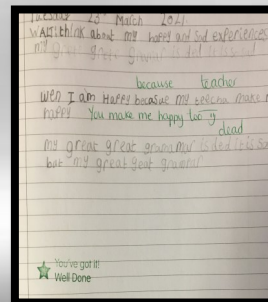 Tuesday 23rd March 2021
WALT: think about my happy and sad experiences
my great great
because teacher
wen I am Happy becasue my make
happy You make me happy too
dead
my great great grandmar is ded it is
but my great
You've got it!
Well Done